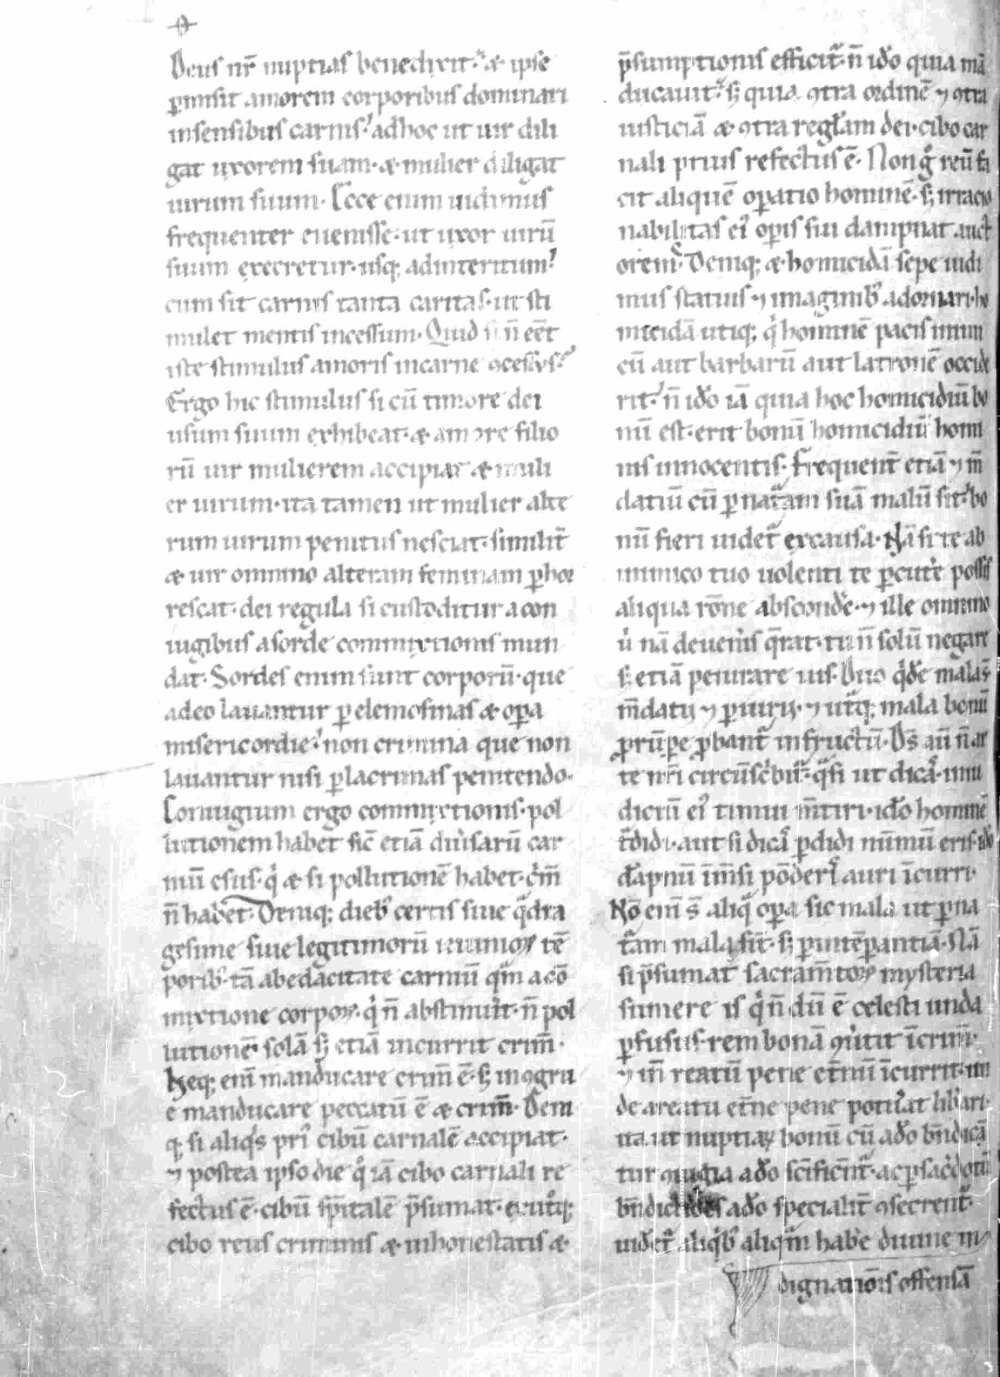 Deus nr̄ nuptias benedixit· & ipse
p̱misit amorem corporibus dominari
insensibus carnis· adhoc ut uir dili
gat uxorem suam· & mulier diligat
uirum suum· Ecce enim uidimus
frequenter euenisse· ut uxor uirū
suum execretur· usq; adinteritum·
cum sit carnis tanta caritas· ut sti
mulet mentis incessum· Quid si n̄ eēt
iste stimulus amoris incarne ꝯcessus·
Ergo hic stimulus si cū timore dei
usum suum exhibeat· & amore filio
rū uir mulierem accipiat & muli
er uirum· ita tamen ut mulier alte
rum uirum penitus nesciat· similit̄
& uir omnino alteram feminam ꝑhor
rescat· dei regula si custoditur a con
iugibus a sorde commixtionis mun
dat· Sordes enim sunt corporū· que
adeo lauantur ꝑ elemosinas & oꝑa
misericordie· non crimina que non
lauantur nisi ꝑ lacrimas penitendo·
Coniugium ergo commixtionis· pol
lutionem habet sic̄ etiā diu͛sarū car
niū esus· q̇ & si pollutionē habet· c͛m̄
n̄ habet· Deniq; dieb; certis siue q̄dra
gesime siue legitimorū ieiunioꝝ tē
porib; tā abedacitate carniū q̄m a cō
mixtione corpoꝝ· q̇ n̄ abstinuit· n̄ pol
lutionē solā s; etiā incurrit crim̄·
Neq; eni̅ manducare crim̄ ē· s; incgru
e manducare peccatū ē & crim̄· Deni
q; si aliq̇s pri̅ cibū carnalē accipiat·
⁊ postea ipso die q̇ iā cibo carnali re
fectus ē· cibū sp̄italē p̄sumat· erutiq;
cibo reus criminis & inhonestatis &
p̄sumptionis efficit̄· n̄ ido quia mā
ducauit· s; quia ꝯtra ordinē ⁊ ꝯtra
iusticiā & ꝯtra regl̄am dei· cibo car
nali prius refectus ē· Non g̊ reū fa
cit aliquē oꝑatio hominē· s; irracio
nabilitas ei͛ oꝑis sui dampnat auct
orem· Deniq; & homicidā sepe uidi
mus statuis ⁊ imaginib; adornari· ho
micidā utiq; q̇ hominē pacis inimi
cū aut barbarū aut latronē occide
rit· n̄ ido iā quia hoc homicidiū bo
nū est· erit bonū homicidiū homi
nis innocentis· Frequent̄ etiā ⁊ m̄
daciū cū ꝑ nat̄am suā malū sit· bo
nū fieri uidet̄ excausa· Nā si te ab
inimico tuo uolenti te ꝑcut͛e possis
aliqua rōne absconde͛· ⁊ ille omnino
u̇ nā deuen͛is q̄rat· tu n̄ solū negare
s; etiā peiurare uis· Duo q̇de mala s̄
m̄datiū ⁊ ꝑiuriū· ⁊ utiq; mala bonū
ꝓrūꝑe ꝓbant̄ infructū· Ds̄ aū n̄ ar
te nr̄i circūsc͛bit̄· q̄si ut dica̅· inui
dictū ei͛ timui m̄tiri· ido hominē
t͛didi· aut si dica̅ ꝑdidi nūmū eris· ido
da̅pnū im̄si pōderi͛ auri i̅curri·
Nō eni̅ s̄ aliq̇ oꝑa sic mala ut ꝑ na
t̄am mala sīt· s; ꝑ intēꝑantiā· Nā
si p̄sumat sacram̄toꝝ mysteria
sumere is q̇ n̄dū ē celesti unda
ꝑfusus· rem bonā ꝯu͛tit i̅ crim̄·
⁊ in̄ reatū pene et͛nū i̅currit· un
de a reatu et͛ne pene potu͛at lib͛ari·
ita ut nuptiaꝝ bonū cū ado bn̄dicā
tur ꝯiugia ado sc̄ificent̄· ac ꝑ sac͛dotū
ado specialit̄ ꝯsecrent̄·
uidet̄ aliq̇b; aliq̄m habe͛ diuine in
dignationis offensā